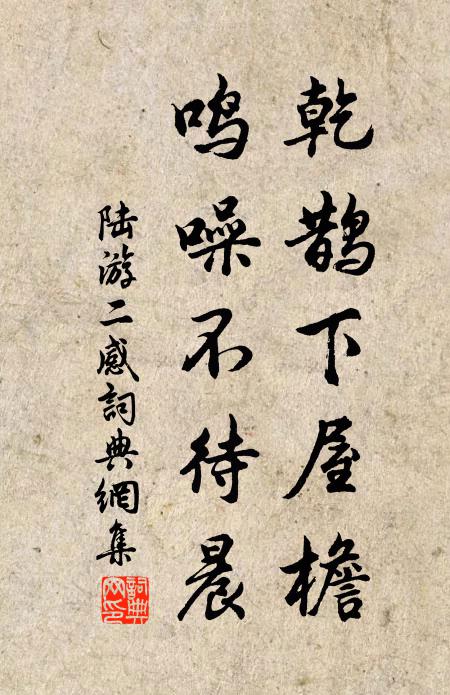 乾鹊下屋檐
鸣噪不待晨
陆游二感詞典網集